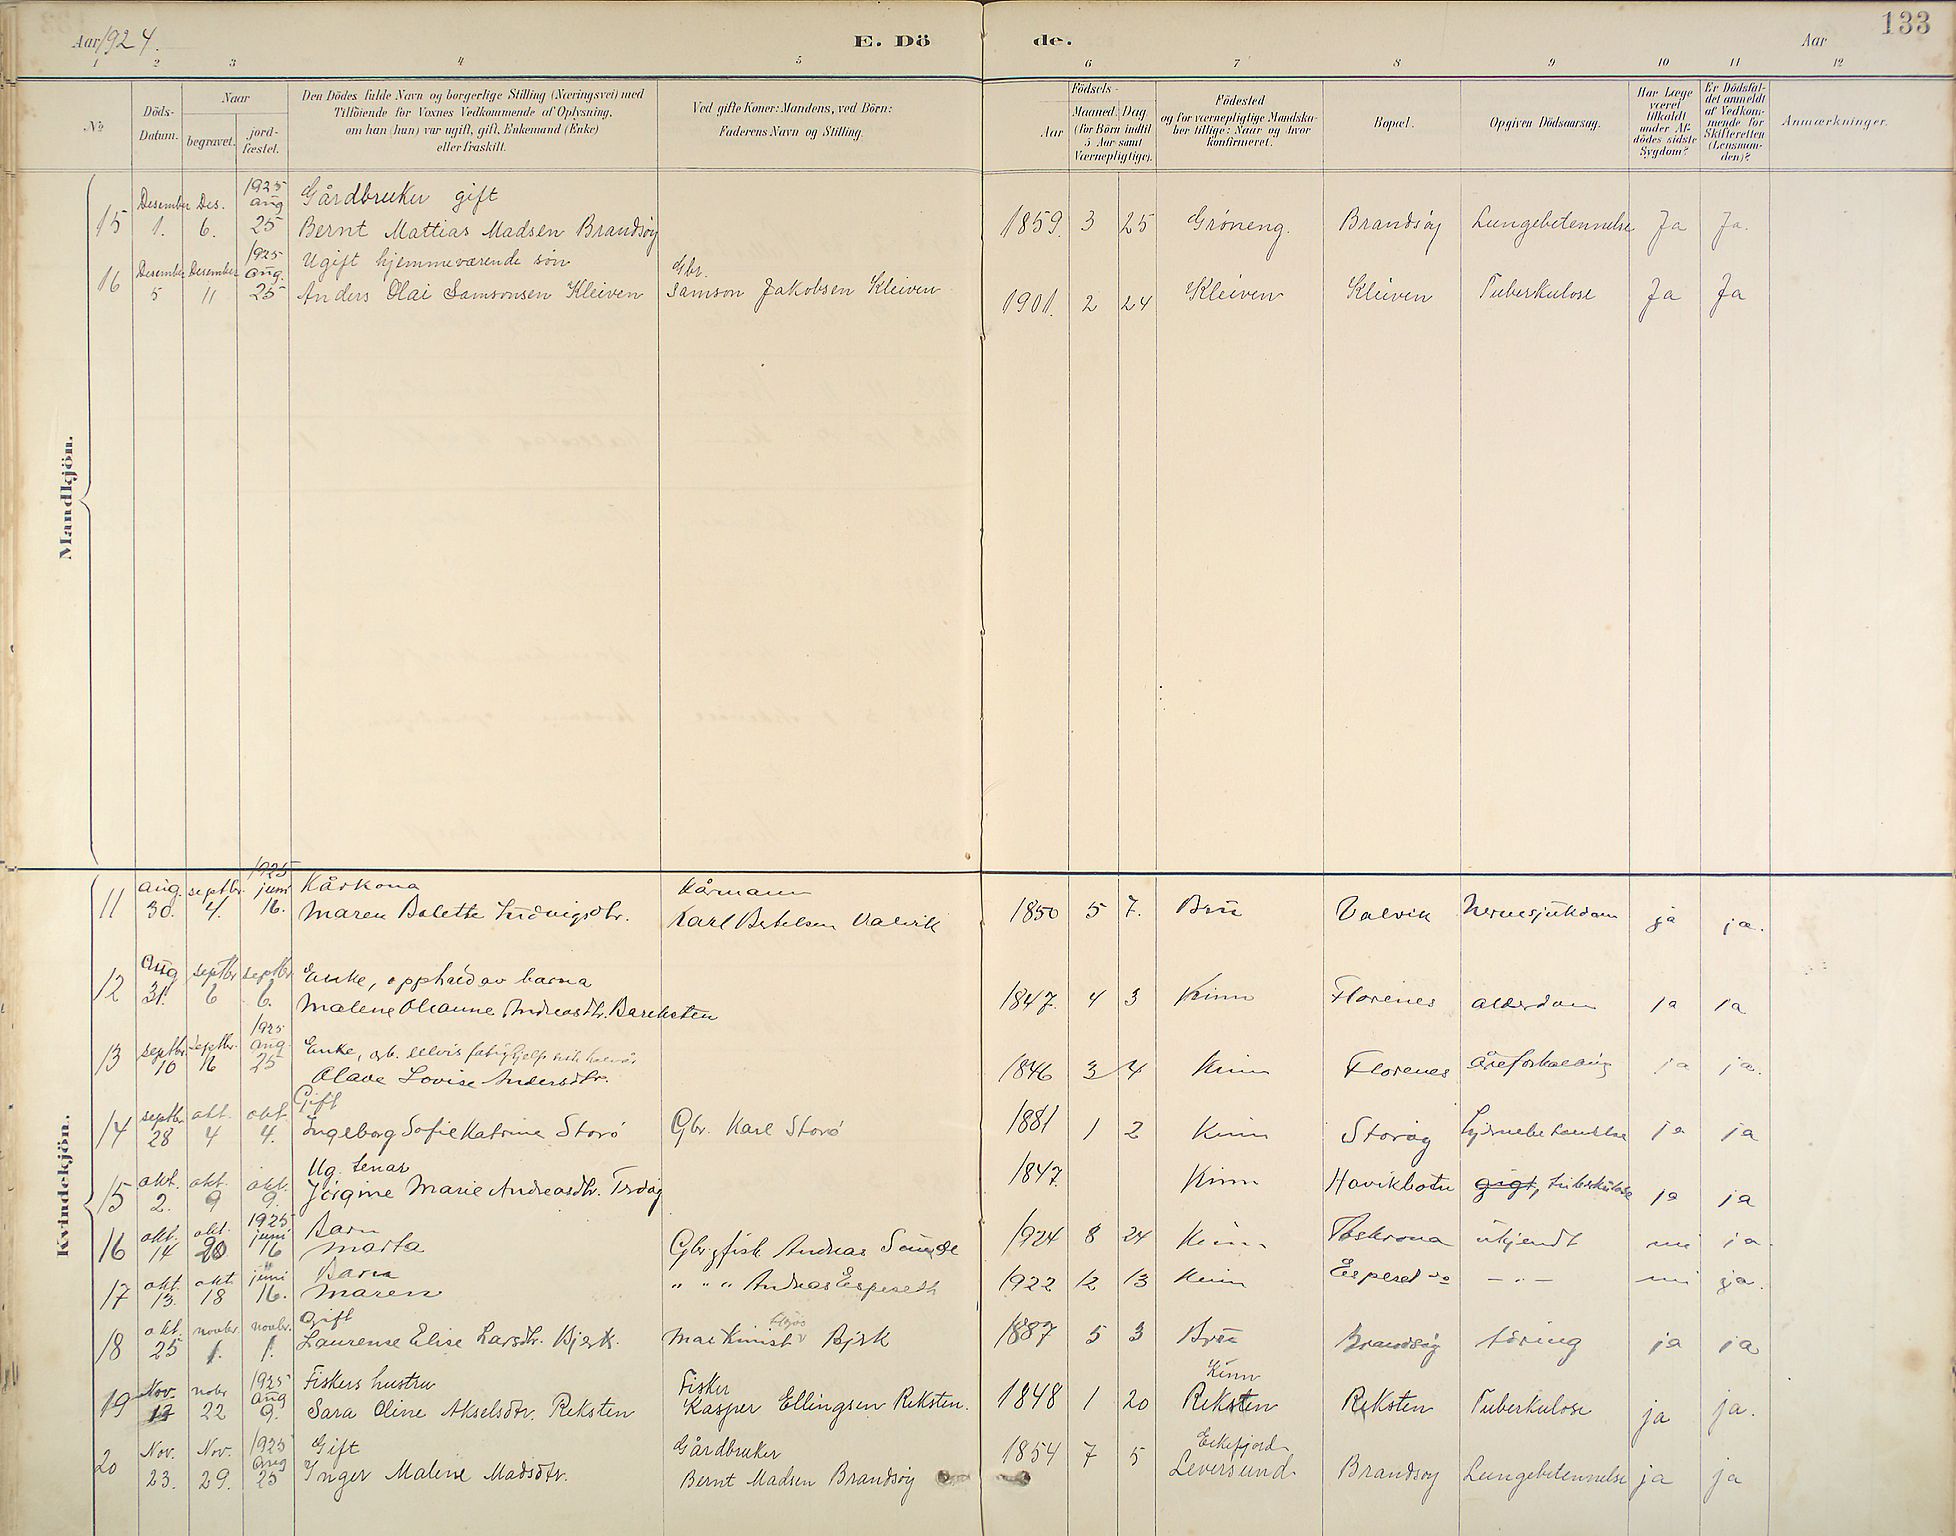 Aar 1924.
E. Dö de.
Aar
133
1 2 3 4 5 6 7 8 9 10 11 12
No
Döds-Datum.
Naar
begravet.
jord-fæstet.
Den Dödes fulde Navn og borgerlige Stilling (Næringsvei) med
Tilföiende for Voxnes Vedkommende af Oplysning,
om han (hun) var ugift, gift, Enkemand (Enke)
eller fraskilt.
Ved gifte Koner: Mandens, ved Börn:
Faderens Navn og Stilling.
Födsels-
Aar
Maaned. Dag
(for Börn indtil
5 Aar samt
Værnepligtige).
Födested
og for værnepligtige Mandska-
ber tillige: Naar og hvor
konfirmeret.
Bopæl.
Opgiven Dödsaarsag.
Har Læge
været
tilkaldt
under Af-
dödes sidste
Sygdom?
Er Dödsfal-
det anmeldt
af Vedkom-
mende for
Skifteretten
(Lensman-
den)?
Anmærkninger.
Mandkjön.
15 Desember 1. Des. 6. 1925 aug 25 Gårdbruker gift
Bernt Mattias Madsen Brandsøy 1859. 3 25 Grøneng. Brandsøy Lungebetennelse Ja Ja.
16 Desember 5 Desember 11 1925 aug. 25 Ugift hjemmeværende søn Gbr.
Anders Olai Samsonsen Kleiven Samson Jakobsen Kleiven 1901. 2 24 Kleiven Kleiven Tuberkulose Ja Ja
Kvindekjön.
11 aug. 30. septbr. 4. 1925 juni 16. Kårkona Kårmann
Maren Bolette Ludvigsdtr. Karl Betelsen Valvik 1850 5 7. Bru Valvik Nervesjukdom ja ja.
12 Aug 31. septbr 6 septbr. 6. Enke, opphald av barna
Malene Oleanne Andreasdtr. Bareksten 1847. 4 3 Kinn Florenes Alderdom ja ja
13 septbr. 10 septbr. 16 1925 aug. 25 Enke,
Olave Lovise Andersdtr. 1846 3 4 Kinn Florenes Åreforkalking ja ja.
14 septbr. 28 okt. 4 okt. 4. Gift
Ingeborg Sofie Katrine Storø Gbr. Karl Storø 1881 1 2 Kinn Storøy Hjernebetendelse ja ja
15 okt. 2. okt. 9 okt. 9. Ug. tenar
Jørgine Marie Andreasdtr. 1847. Kinn Havikbotn gigt, tuberkulose ja ja
16 okt. 14 okt. 20 1925 juni 16 Barn
Marta Gbr. Andreas Sunde 1924 8 24 Kinn ukjendt nei ja.
17 okt. 13. okt. 18 " juni 16. Barn
Maren " " " Andreas Espeseth 1922 12 13 Kinn Espeset — " — nei ja.
18 okt. 25 novbr. 1. novbr. 1. Gift
Laurense Elise Larsdtr. Bjerk. Maskinist Bjrk 1887 5 3 Bru Brandsøy tæring ja ja
19 Nov. 22 1925 aug 9. Fiskers hustru Fisker
Sara Oline Akselsdtr. Reksten Kasper Ellingsen Reksten. 1848 1 20 Kinn Reksten Reksten Tuberkulose ja ja.
20 Nov. 23. Nov. 29. 1925 aug 25 Gift Gårdbruker
Inger Malene Madsdtr. Bernt Madsen Brandsøy 1854 7 5 Eikefjord Leversund Brandsøy Lungebetennelse ja ja